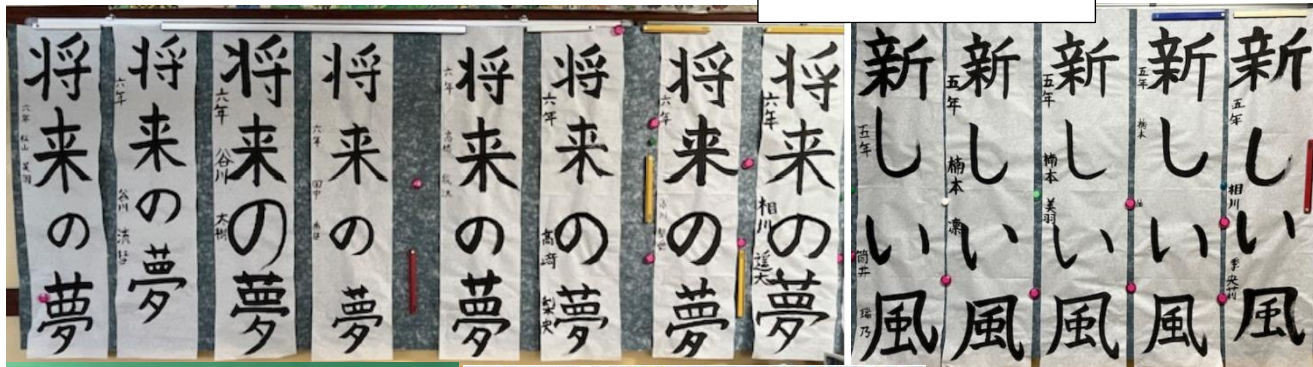 将来の夢
六年
将来の夢
六年 谷川
将来の夢
六年 谷川 大樹
将来の夢
六年 田中
将来の夢
六年 高橋
将来の夢
六年 高﨑 梨央
将来の夢
六年
将来の夢
六年 相川 遥大
新しい風
五年 筒井 瑞乃
新しい風
五年 楠本 凛
新しい風
五年 楠本 美羽
新しい風
五年 楠本
新しい風
五年 相川